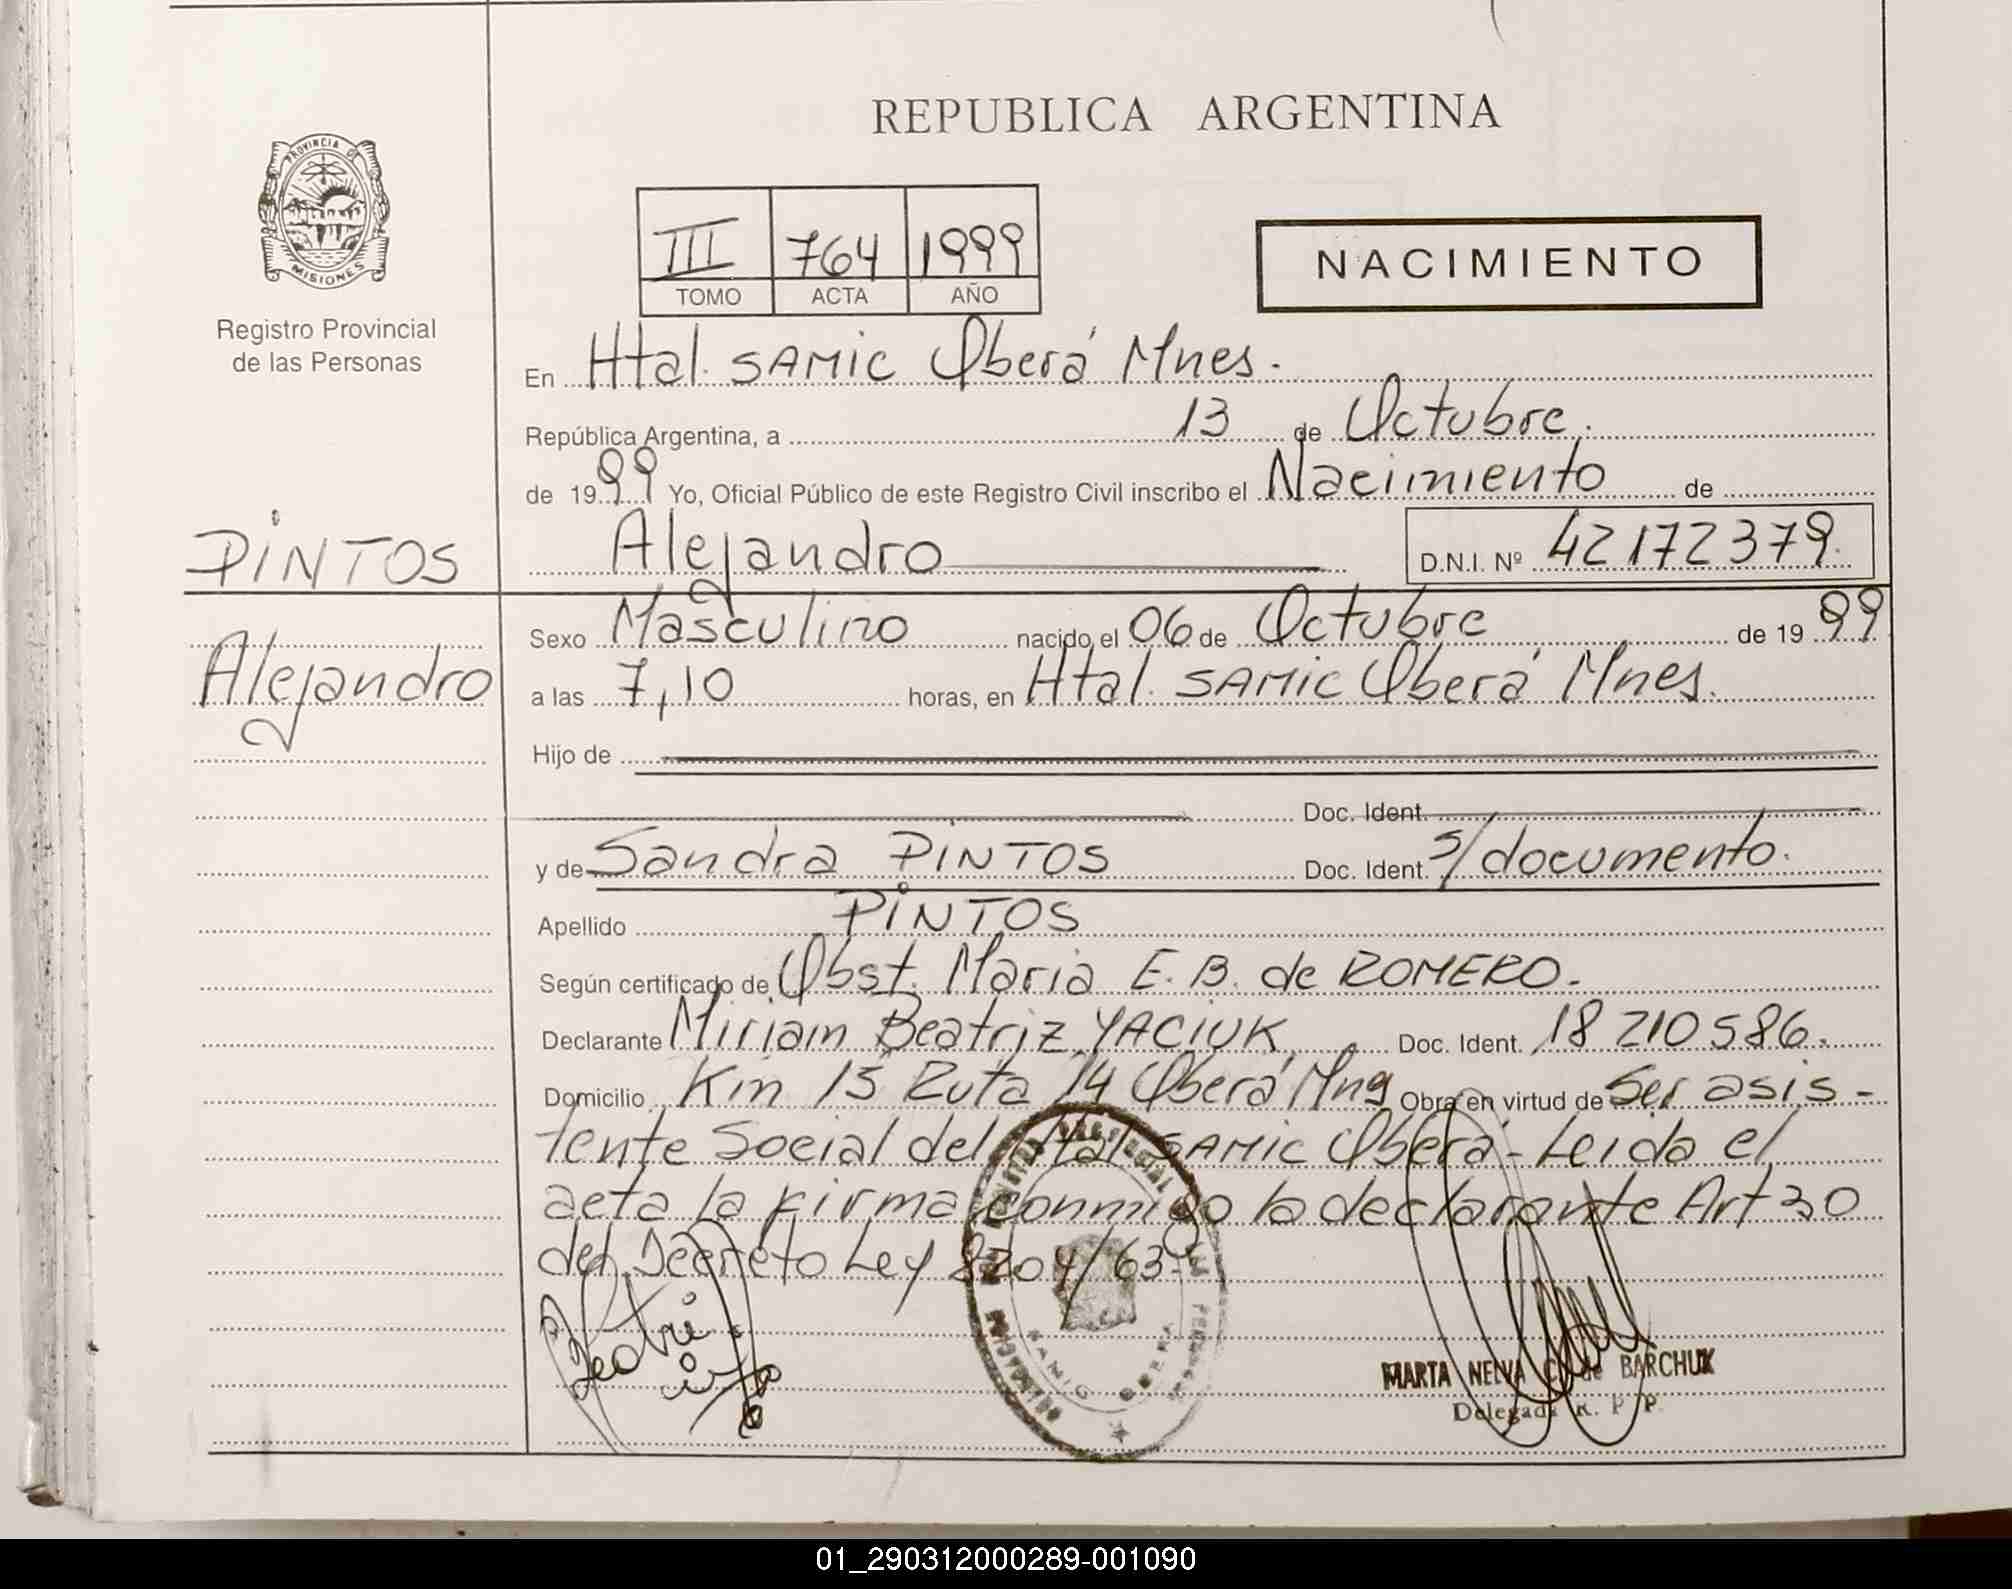 REPUBLICA ARGENTINA
PROVINCIA DE
MISIONES
Registro Provincial
de las Personas
III 764 1999
TOMO ACTA AÑO
NACIMIENTO
En Htal. SAMIC Oberá Mnes.
República Argentina, a 13 de Octubre.
de 1999 Yo, Oficial Público de este Registro Civil inscribo el Nacimiento de
PINTOS
Alejandro D.N.I. Nº 42172379.
Alejandro
Sexo Masculino nacido el 06 de Octubre de 1999
a las 7,10 horas, en Htal. SAMIC Oberá Mnes.
Hijo de
Doc. Ident.
y de Sandra PINTOS Doc. Ident. s/documento.
Apellido PINTOS
Según certificado de Obst. Maria E. B. de ROMERO.
Declarante Miriam Beatriz YACIUK Doc. Ident. 18 210586.
Domicilio Km 15 Ruta 14 Oberá Mns Obra en virtud de Ser asis-
tente Social del Htal SAMIC Oberá - Leida el
acta la firma conmigo la declarante Art 30
del Decreto Ley 8204/63-
MARTA NELVA C. de BARCHUK
Delegada R. P. P.
01_290312000289-001090